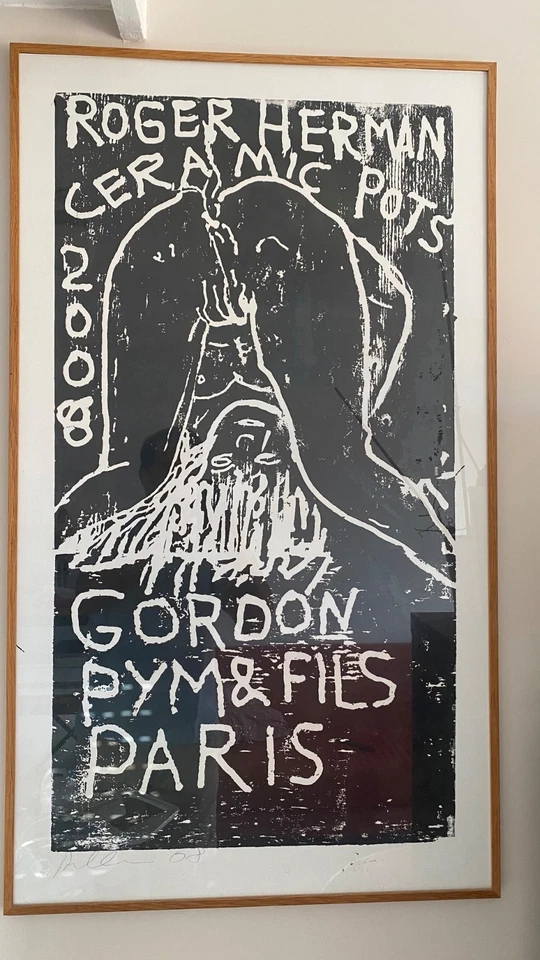 ROGER HERMAN
CERAMIC POTS
2008
GORDON
PYM & FILS
PARIS
08